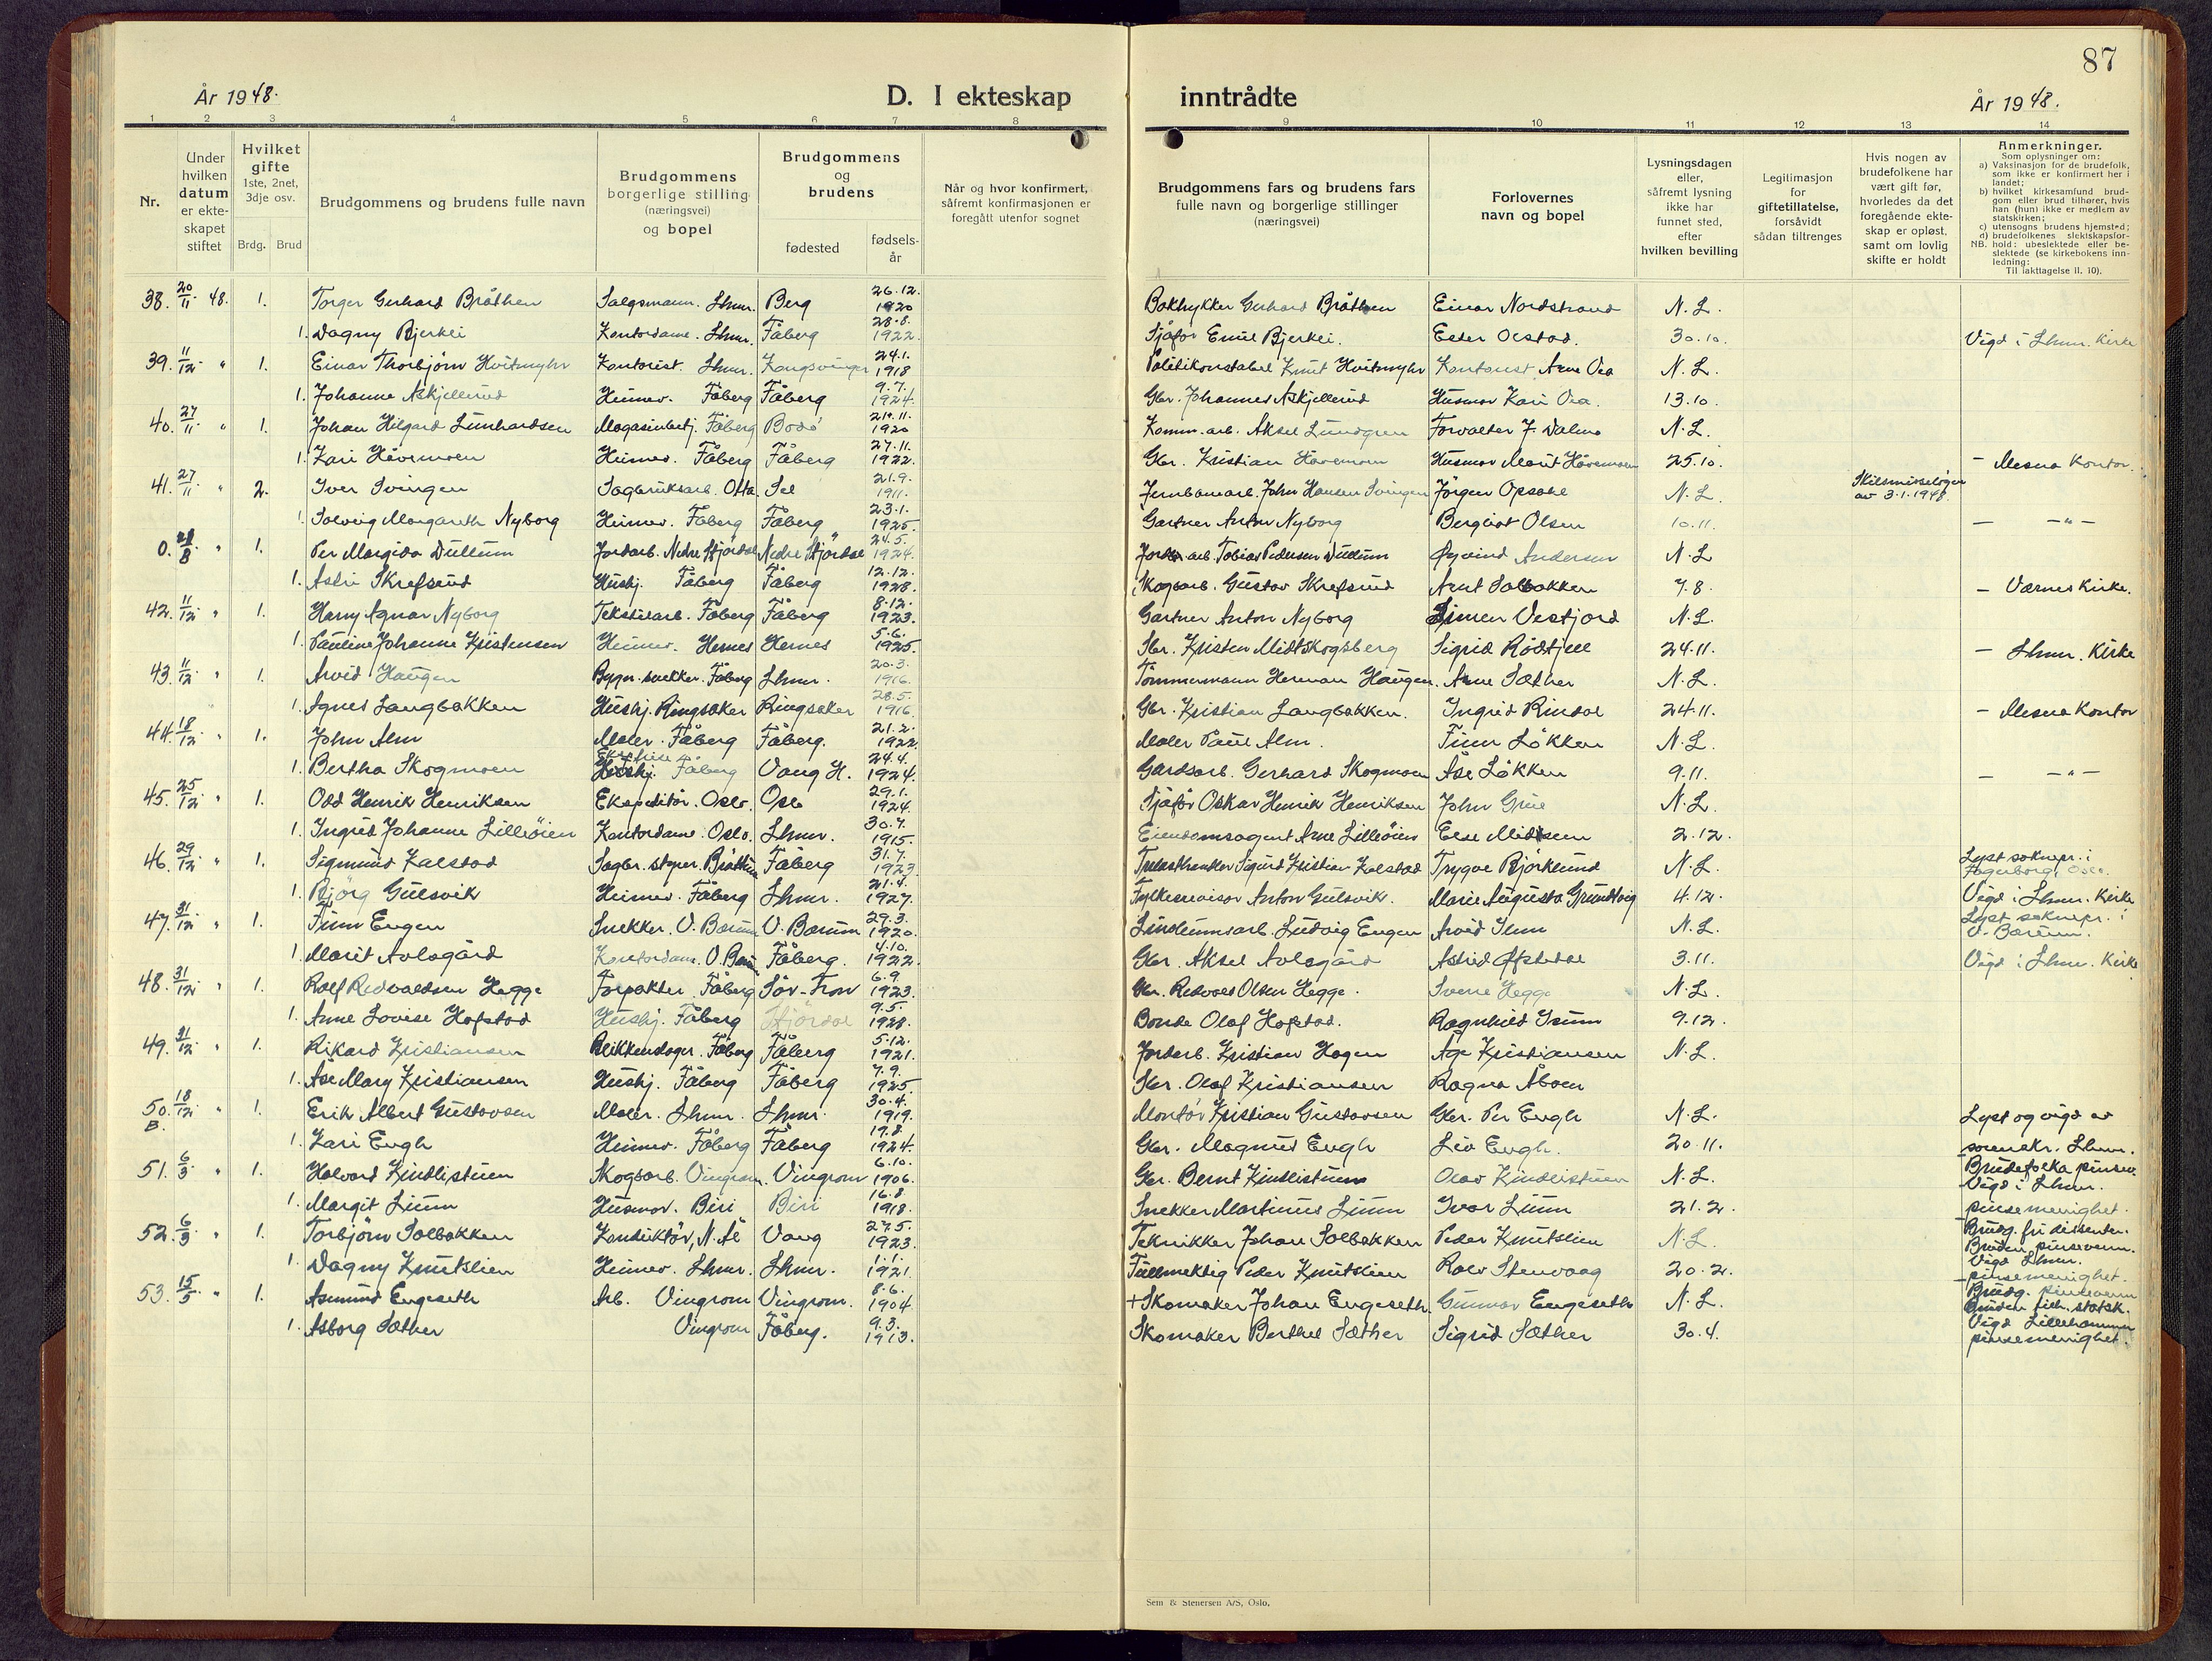 87
År 1948.
D. I ekteskap inntrådte
År 1948.
1 2 3 4 5 6 7 8 9 10 11 12 13 14
Nr.
Under hvilken datum er ekte-skapet stiftet
Hvilket gifte 1ste, 2net, 3dje osv.
Brdg. Brud
Brudgommens og brudens fulle navn
Brudgommens borgerlige stilling (næringsvei) og bopel
Brudgommens og brudens
fødested
fødsels-år
Når og hvor konfirmert, såfremt konfirmasjonen er foregått utenfor sognet
Brudgommens fars og brudens fars fulle navn og borgerlige stillinger (næringsvei)
Forlovernes navn og bopel
Lysningsdagen eller, såfremt lysning ikke har funnet sted, efter hvilken bevilling
Legitimasjon for giftetillatelse, forsåvidt sådan tiltrenges
Hvis nogen av brudefolkene har vært gift før, hvorledes da det foregående ekte-skap er opløst, samt om lovlig skifte er holdt
Anmerkninger.
Som oplysninger om:
a) Vaksinasjon for de brudefolk, som ikke er konfirmert her i landet;
b) hvilket kirkesamfund brud-gom eller brud tilhører, hvis han (hun) ikke er medlem av statskirken;
c) utensogns brudens hjemsted;
d) brudefolkenes slektskapsfor-hold: ubeslektede eller be-slektede (se kirkebokens inn-ledning:
NB.
Til iakttagelse II. 10).
38. 20/11 48. 1. Torger Gerhard Bråthen Salgsmann. Lhmr. Berg 26.12. 1920 Boktrykker Gerhard Bråthen Einar Nordstrand N.L.
1. Dagny Bjerkli Kontordame. Lhmr. Fåberg 28.8. 1922. Sjåfør Emil Bjerkli. Ester Olstad. 30.10. Vigd i Lhmr. Kirke
39. 11/12 " 1. Einar Thorbjørn Hvitmyhr Kontorist. Lhmr. Kongsvinger 24.1. 1918 Politikonstabel Knut Hvitmyhr Kontorist Arne Oea N.L.
1. Johanne Askjellerud Heimev. Fåberg Fåberg 9.7. 1924. Gbr. Johannes Askjellerud Husmor Kari Oea. 13.10.
40. 27/11 " 1. Johan Hilgard Lunhardsen Magasinbetj. Fåberg Bodø 21.11. 1920 Komm. arb. Aksel Lundgren Forvalter J. Dalmo N.L.
1. Kari Håvemoen Heimev. Fåberg Fåberg 27.11. 1922. Gbr. Kristian Håvemoen Husmor Marit Håvemoen 25.10. - Mesna Kontor.
41. 27/11 " 2. Iver Svingen Sagbruksarb. Otta. Sel 21.9. 1911. Jernbanearb. John Hansen Svingen Jørgen Opsahl N.L. Skilsmisseløyve av 3.1.1948.
1. Solveig Margareth Nyborg Heimev. Fåberg Fåberg 23.1. 1925. Gartner Anton Nyborg Bergliot Olsen 10.11. - -"-
0. 21/8 " 1. Per Margido Dullum Jordarb. Nedre Stjørdal Nedre Stjørdal 24.5. 1924. Jordarb. Tobias Pedersen Dullum Øyvind Andersen N.L
1. Astri Skrefsrud Hushj. Fåberg Fåberg 12.12. 1928. Skogsarb. Gustav Skrefsrud Arnt Solbakken 7.8. - Værnes Kirke.
42. 11/12 " 1. Harry Agnar Nyborg Tekstilarb. Fåberg Fåberg 8.12. 1923. Gartner Anton Nyborg Simen Vestjord N.L.
1. Pauline Johanne Kristensen Heimev. Hernes Hernes 5.6. 1925. Sbr. Kristen Midtskogsberg Sigrid Rødfjell 24.11. - Lhmr. Kirke
43. 11/12 " 1. Arvid Haugen Bygn.snekker. Fåberg Lhmr. 20.3. 1916. Tømmermann Herman Haugen. Arne Sæther N.L.
1. Agnes Langbakken Hushj. Ringsaker Ringsaker 28.5. 1916. Gbr. Kristian Langbakken. Ingrid Rindal 24.11. - Mesna Kontor
44. 18/12 " 1. John Alm Maler. Fåberg Fåberg. 21.2. 1922. Maler Paul Alm. Finn Løkken N.L.
1. Bertha Skogmoen Hushj. Fåberg Vang H. 24.4. 1924. Gårdsarb. Gerhard Skogmoen Åse Løkken 9.11. - -"-
45. 25/12 " 1. Odd Henrik Henriksen Ekspeditør. Oslo. Oslo 29.1. 1924. Sjåfør Oskar Henrik Henriksen John Grue N.L.
1. Ingrid Johanne Lilleøien Kontordame. Oslo. Lhmr. 30.7. 1915. Eiendomsagent Arne Lilleøien Else Midtsem 2.12.
46. 29/12 " 1. Sigmund Kalstad Sagbr. styrer. Bråttum Fåberg 31.7. 1923 Trelasthandler Sigurd Kristian Kalstad Trygve Bjørklund N.L. Lyst soknepr. i Fagerborg, Oslo.
1. Bjørg Gulsvik Heimev. Fåberg Lhmr. 21.4. 1927. Fylkesrevisor Anton Gulsvik. Marie Augusta Grundtvig 4.12. Vigd i Lhmr. Kirke
47. 31/12 " 1. Finn Engen Snekker. V. Bærum V. Bærum 29.3. 1920. Lindeumsarb. Ludvig Engen Arvid Tenn N.L. Lyst soknepr. i V. Bærum.
1. Marit Avlsgård Kontordame. V. Bærum Fåberg. 4.10. 1922. Gbr. Aksel Avlsgård Astrid Ofstedal 3.11. Vigd i Lhmr. Kirke
48. 31/12 " 1. Rolf Redvaldsen Hegge Forpakter. Fåberg Sør-Fron 6.9 1923. Gbr. Redvald Olsen Hegge. Sverre Hegge N.L.
1. Anne Lovise Hofstad Hushj. Fåberg Stjørdal 9.5. 1928. Bonde Olaf Hofstad. Ragnhild Isum 9.12.
49. 31/12 " 1. Rikard Kristiansen Blikkenslager. Fåberg Fåberg 5.12. 1921. Jordarb. Kristian Hagen Åge Kristiansen N.L.
1. Åse Mary Kristiansen Hushj. Fåberg Fåberg 7.9. 1925 Sbr. Olaf Kristiansen Ragna Åboen
50. B. 18/12 " 1. Erik Albert Gustavsen Maler. Lhmr. Lhmr. 30.4. 1919. Montør Kristian Gustavsen Gbr. Per Engh N.L. Lyst og vigd av
1. Kari Engh Heimev. Fåberg Fåberg 19.8. 1924. Gbr. Magnus Engh Liv Engh. 20.11. sorenskr. Lhmr.
51. 6/3 " 1. Halvard Kindlistuen Skogsarb. Vingrom. Vingrom 6.10. 1906. Gbr. Bernt Kindlistuen Olav Kindlistuen N.L. - Brudefolka pinsev. Vigd i Lhmr.
1. Margit Lium Husmor. Biri Biri 16.8. 1918. Snekker Martinus Lium Ivar Lium 21.2. pinsemenighet.
52. 6/3 " 1. Torbjørn Solbakken Konduktør, N. Ål Vang 27.5. 1923. Teknikker Johan Solbakken Peder Knutslien N.L. - Brudg. fri dissenter. Bruden pinsevenn.
1. Dagny Knutslien Heimev. Lhmr. Lhmr. 1.1. 1921. Fullmektig Peder Knutslien Rolv Stenvaag 20.2. Vigd Lhmr. pinsemenighet.
53. 15/5 " 1. Asmund Engeseth Arb. Vingrom Vingrom. 8.6. 1904 + Skomaker Johan Engeseth. Gunnar Engeseth N.L. - Brudg. pinsevenn Bruden tilh. statsk.
1. Asborg Sæther Vingrom Fåberg. 9.3. 1913. Skomaker Berthel Sæther Sigrid Sæther 30.4. Vigd Lillehammer pinsemenighet.
Sem & Stenersen A/S, Oslo.